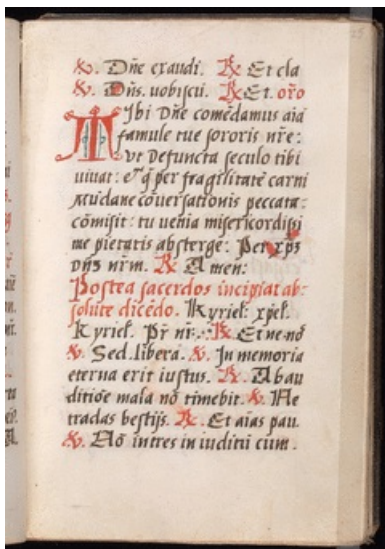 ℣. Dñe exaudi. ℟. Et cla
℣. Dñs. uobiscũ. ℟. Et. orõ
Tibi Dñe comẽdamus aĩã
famule tue sororis nr̃e:
vt defuncta seculo tibi
uiuat: et q̃ per fragilitatẽ carni
mũdane cõuersationis peccata
cõmisit: tu uenia misericordissi
me pietatis absterge: Per xp̃ȝ
dñȝ nr̃m. ℟. Amen:
Postea sacerdos incipiat ab-
solute dicẽdo. Kyriel̃. xp̃el̃.
Kyriel̃. Pr̃ nr̃. ℟. Et ne nõ
℣. Sed. libera. ℣. In memoria
eterna erit iustus. ℟. Ab au
ditiõe mala nõ timebit. ℣. Ne
tradas bestijs. ℟. Et aĩas pau.
℣. Nõ intres in iuditiũ cum.